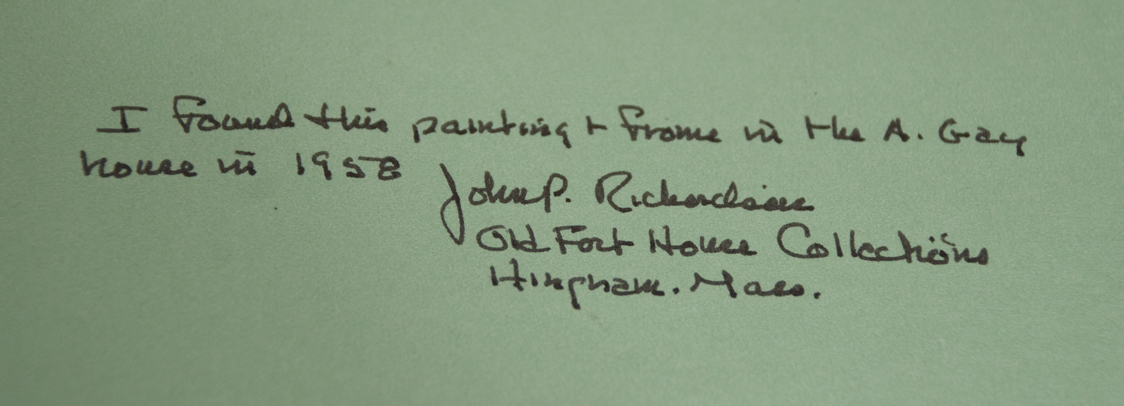 I found this painting + frame in the A. Gay
house in 1958
John P. Richardson
Old Fort House Collections
Hingham. Mass.